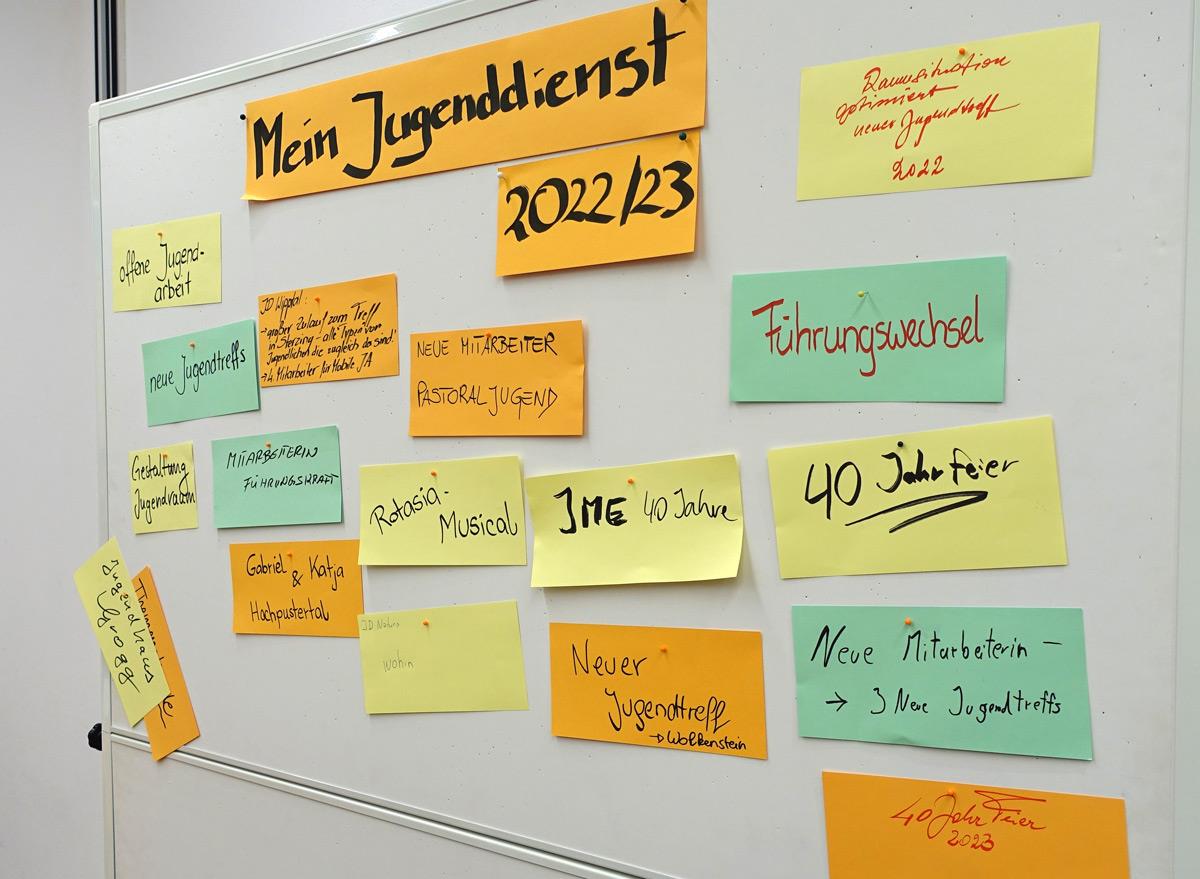 Mein Jugenddienst
2022/23
Raumsituation
optimiert
neuer Jugendtreff
2022
offene Jugend-
arbeit
neue Jugendtreffs
JD Wipptal:
→ großer Zulauf zum Treff
in Sterzing - alle Typen von
Jugendlichen die zugleich da sind!
→ 4 Mitarbeiter für Mobile JA
NEUE MITARBEITER
PASTORAL JUGEND
Führungswechsel
Gestaltung
Jugendraum
MITARBEITERIN
FÜHRUNGSKRAFT
Rotasia-
Musical
JME 40 Jahre
40 Jahr Feier
Jugendhaus
Gabriel & Katja
Hochpustertal
JD Naturns
wohin
Neuer
Jugendtreff
→ Wolkenstein
Neue Mitarbeiterin –
→ 3 Neue Jugendtreffs
40 Jahr Feier
2023